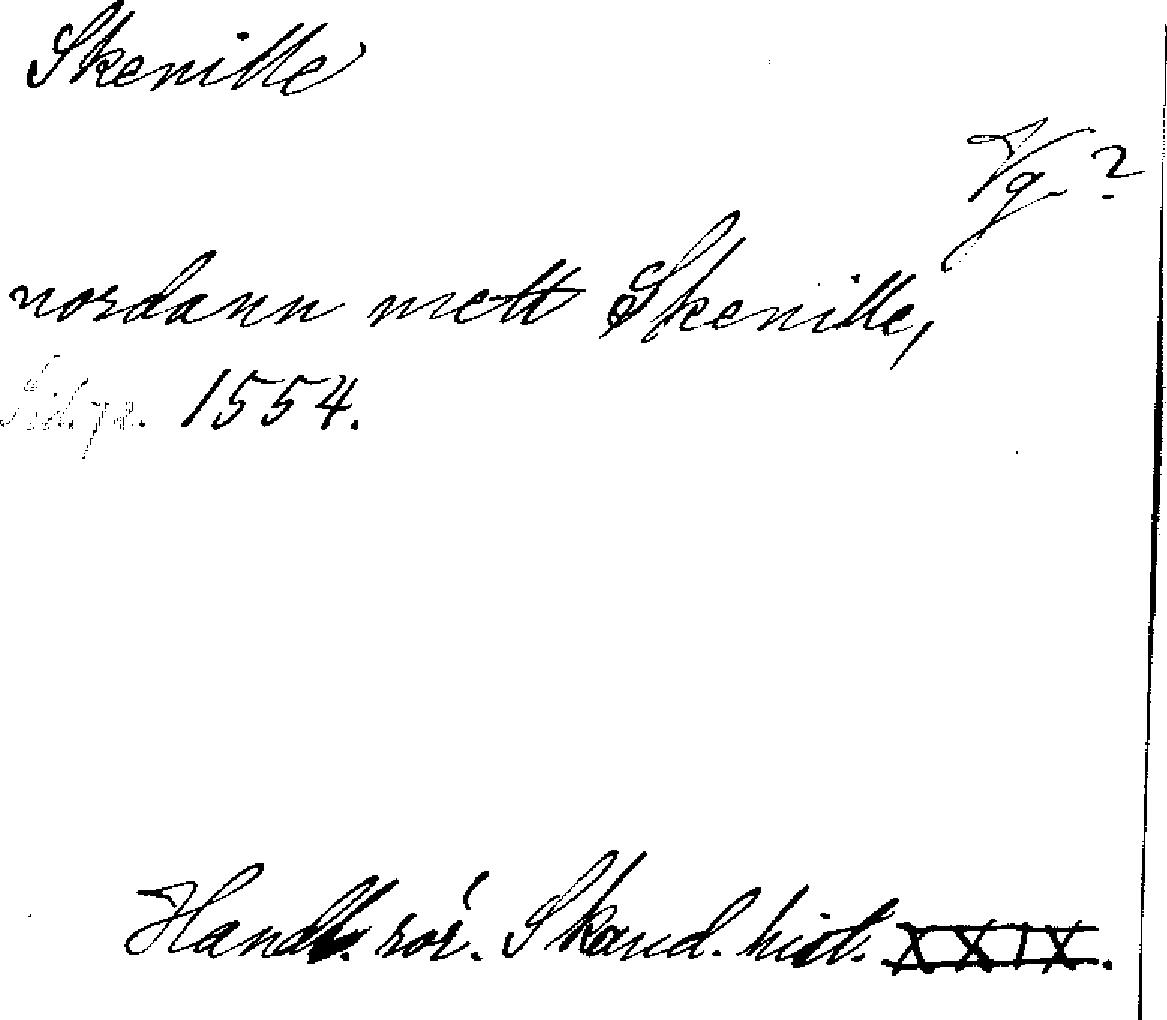 Skenille
Vg. ?
nordann mett Skenille,
1554.
Handl. rör. Skand. hist. XXIX.